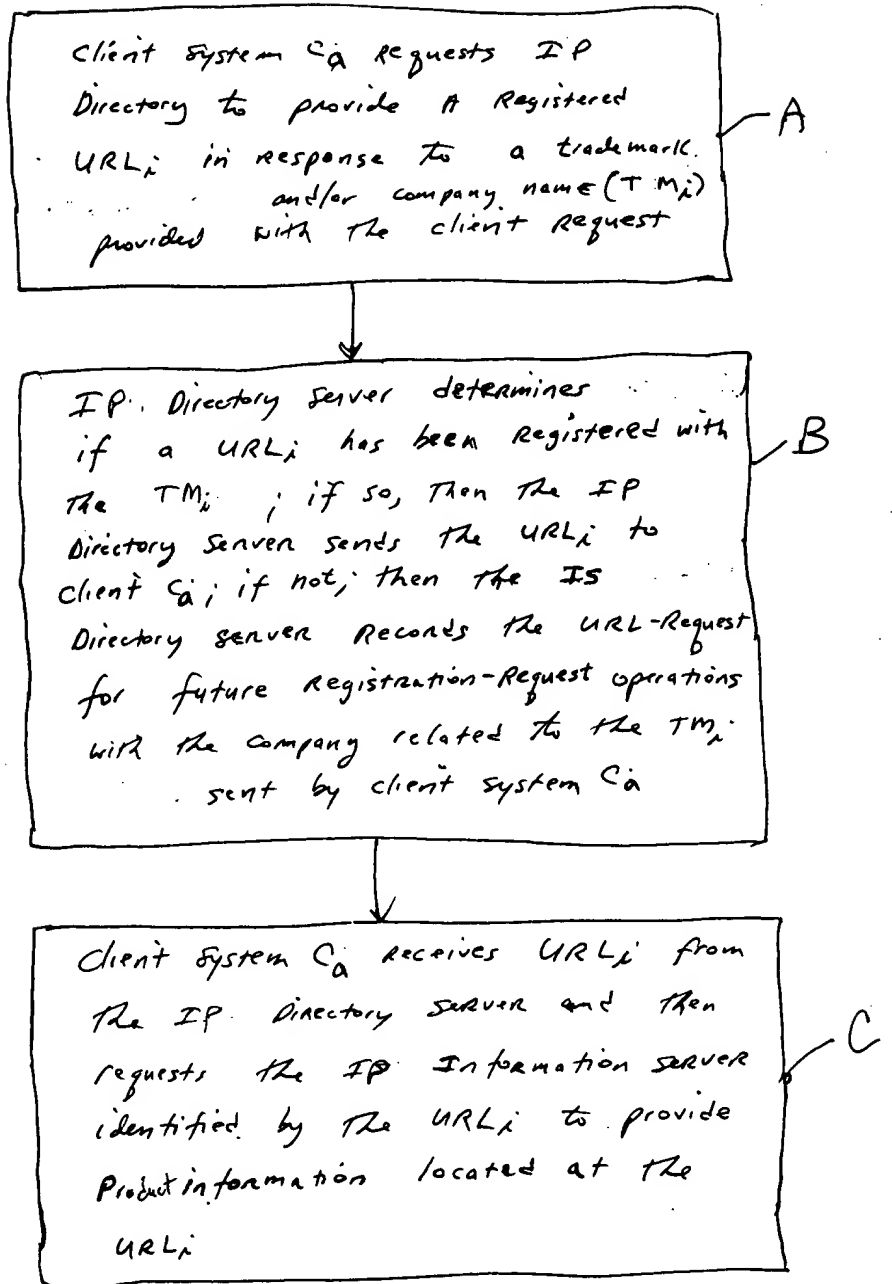 Client System Ca Requests IP
Directory to provide A Registered
URLi in response to a trademark
and/or company name (TMi)
provided with the client Request
A
IP Directory Server determines
if a URLi has been Registered with
the TMi ; if so, then the IP
Directory Server sends the URLi to
client Ca; if not; then the IS
Directory server Records the URL-Request
for future Registration-Request operations
with the company related to the TMi
sent by client system Ca
B
Client System Ca Receives URLi from
the IP Directory Server and then
requests the IP Information Server
identified by the URLi to provide
Product information located at the
URLi
C